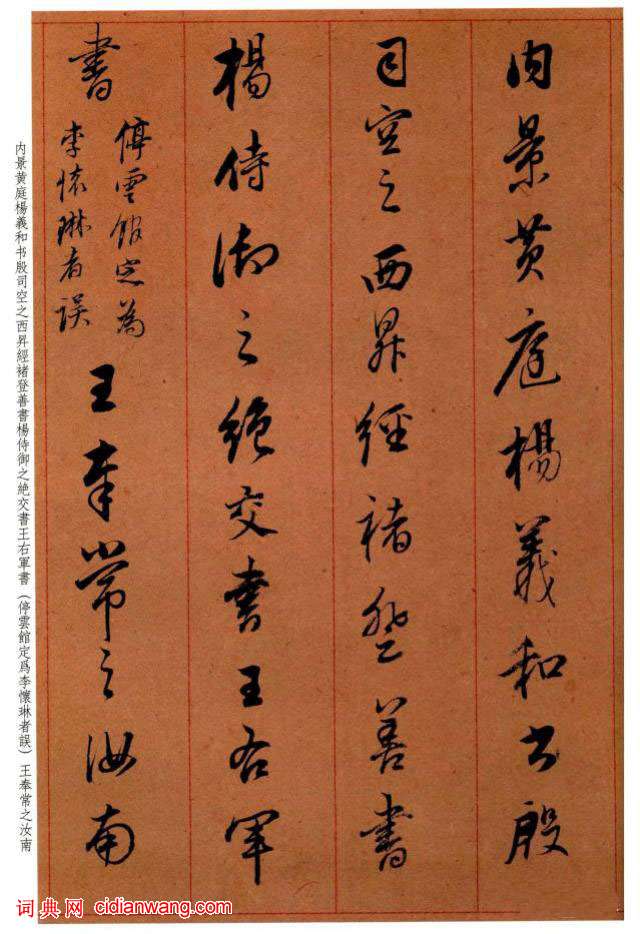 内景黄庭楊義和书殷
司空之西昇經褚登善書
楊侍御之絶交書王右軍
書
停雲館定為
李懷琳者誤
王奉常之汝南
内景黄庭楊義和书殷司空之西昇經褚登善書楊侍御之絶交書王右軍書（停雲館定爲李懷琳者誤）王奉常之汝南
词典网 cidianwang.com